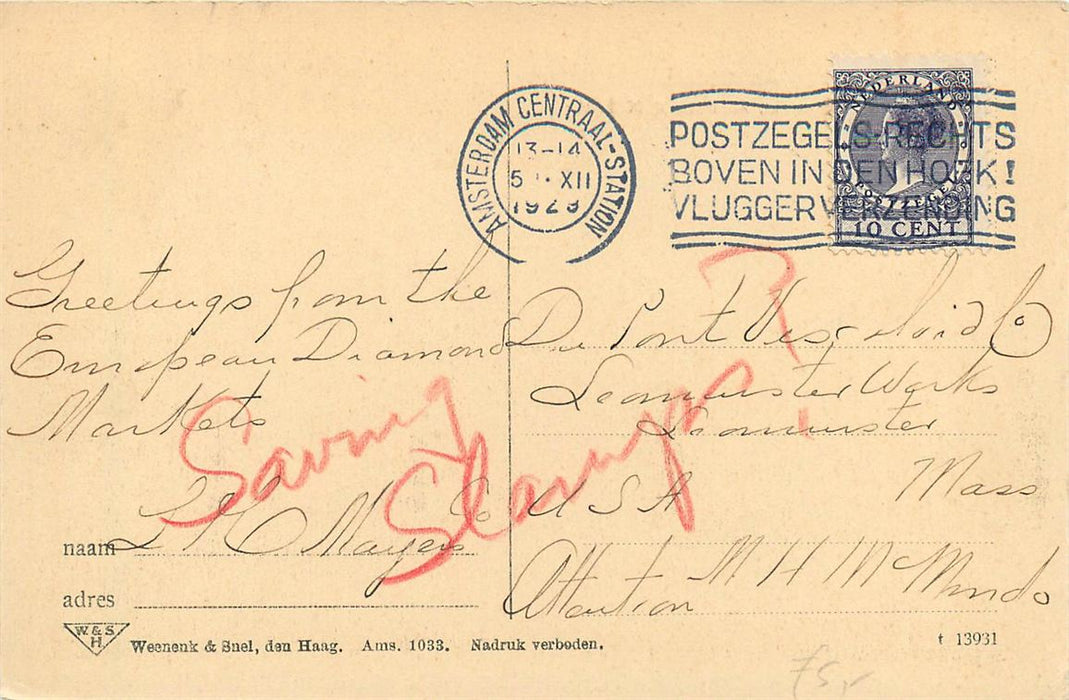 AMSTERDAM CENTRAAL-STATION
13-14
5 XII
1929
POSTZEGELS RECHTS
BOVEN IN DEN HOEK!
VLUGGER VERZENDING
NEDERLAND
POSTZEGEL
10 CENT
Greetings from the
European Diamond
Markets
L & C Mayers Co
Saving
Stamps?
Du Pont Viscoloid Co
Leominster Works
Leominster
Mass
U S A
Attention M H
naam
adres
W.&S.
H.
Weenenk & Snel, den Haag. Ams. 1033. Nadruk verboden.
t 13931
f5,-